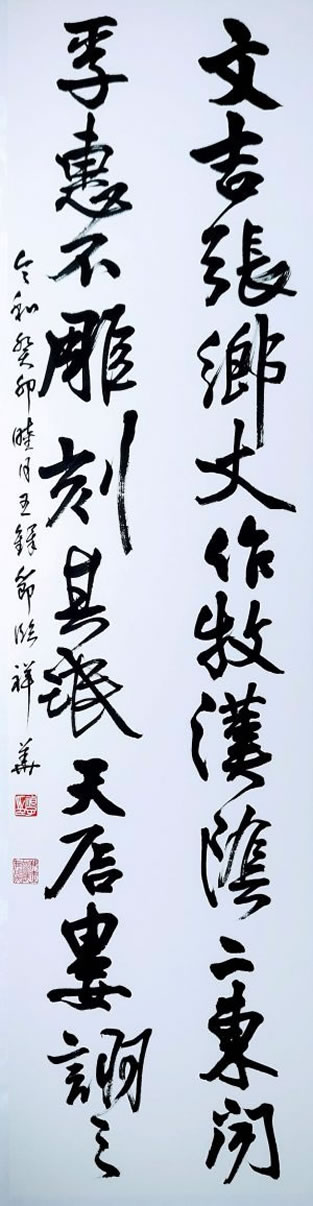 文吉張鄉丈作牧漢陰二東
惠不雕刻其氓天婁之
令和癸卯睦月王鐸節臨祥華